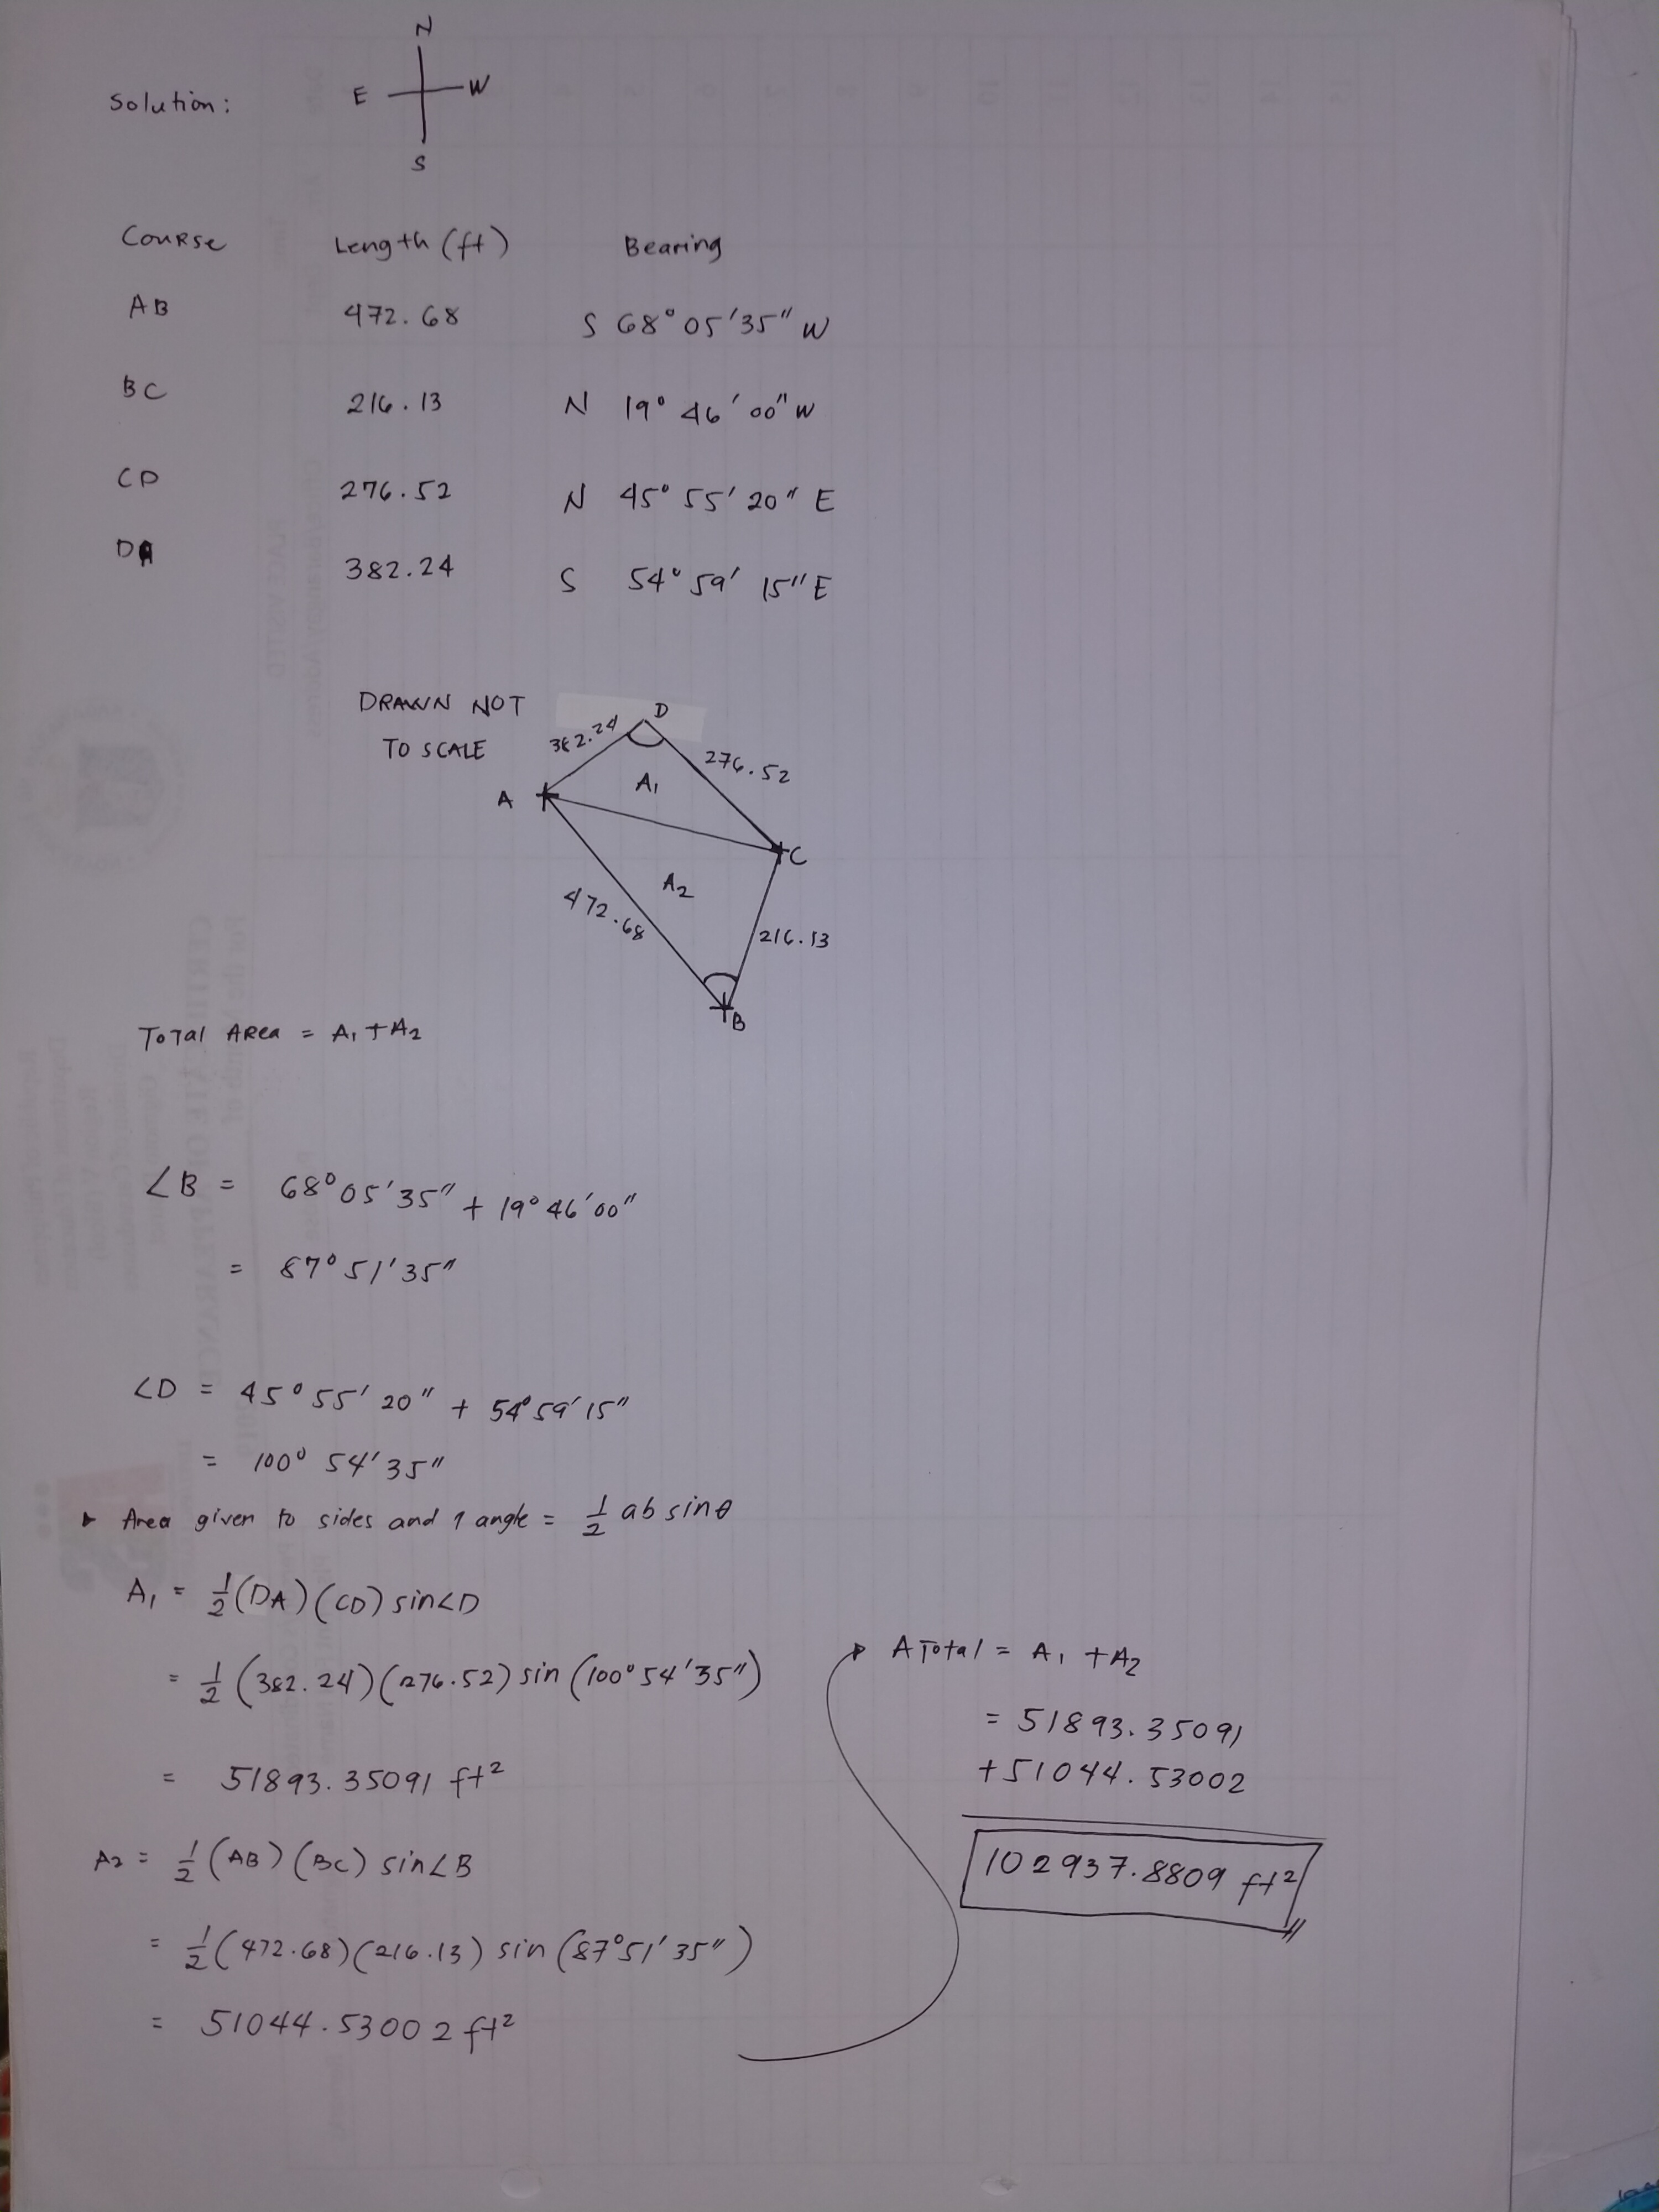 N
Solution: E W
S
Course Length (ft) Bearing
AB 472.68 S 68° 05' 35" W
BC 216.13 N 19° 46' 00" W
CD 276.52 N 45° 55' 20" E
DA 382.24 S 54° 59' 15" E
DRAWN NOT
TO SCALE
D
382.24
276.52
A
A₁
C
A₂
472.68
216.13
B
Total Area = A₁ + A₂
∠B = 68° 05' 35" + 19° 46' 00"
= 87° 51' 35"
∠D = 45° 55' 20" + 54° 59' 15"
= 100° 54' 35"
▸ Area given to sides and 1 angle = 1/2 ab sin θ
A₁ = 1/2 (DA) (CD) sin∠D
= 1/2 (382.24) (276.52) sin (100° 54' 35")
= 51893.35091 ft²
A₂ = 1/2 (AB) (BC) sin∠B
= 1/2 (472.68) (216.13) sin (87° 51' 35")
= 51044.53002 ft²
A Total = A₁ + A₂
= 51893.35091
+ 51044.53002
102937.8809 ft²